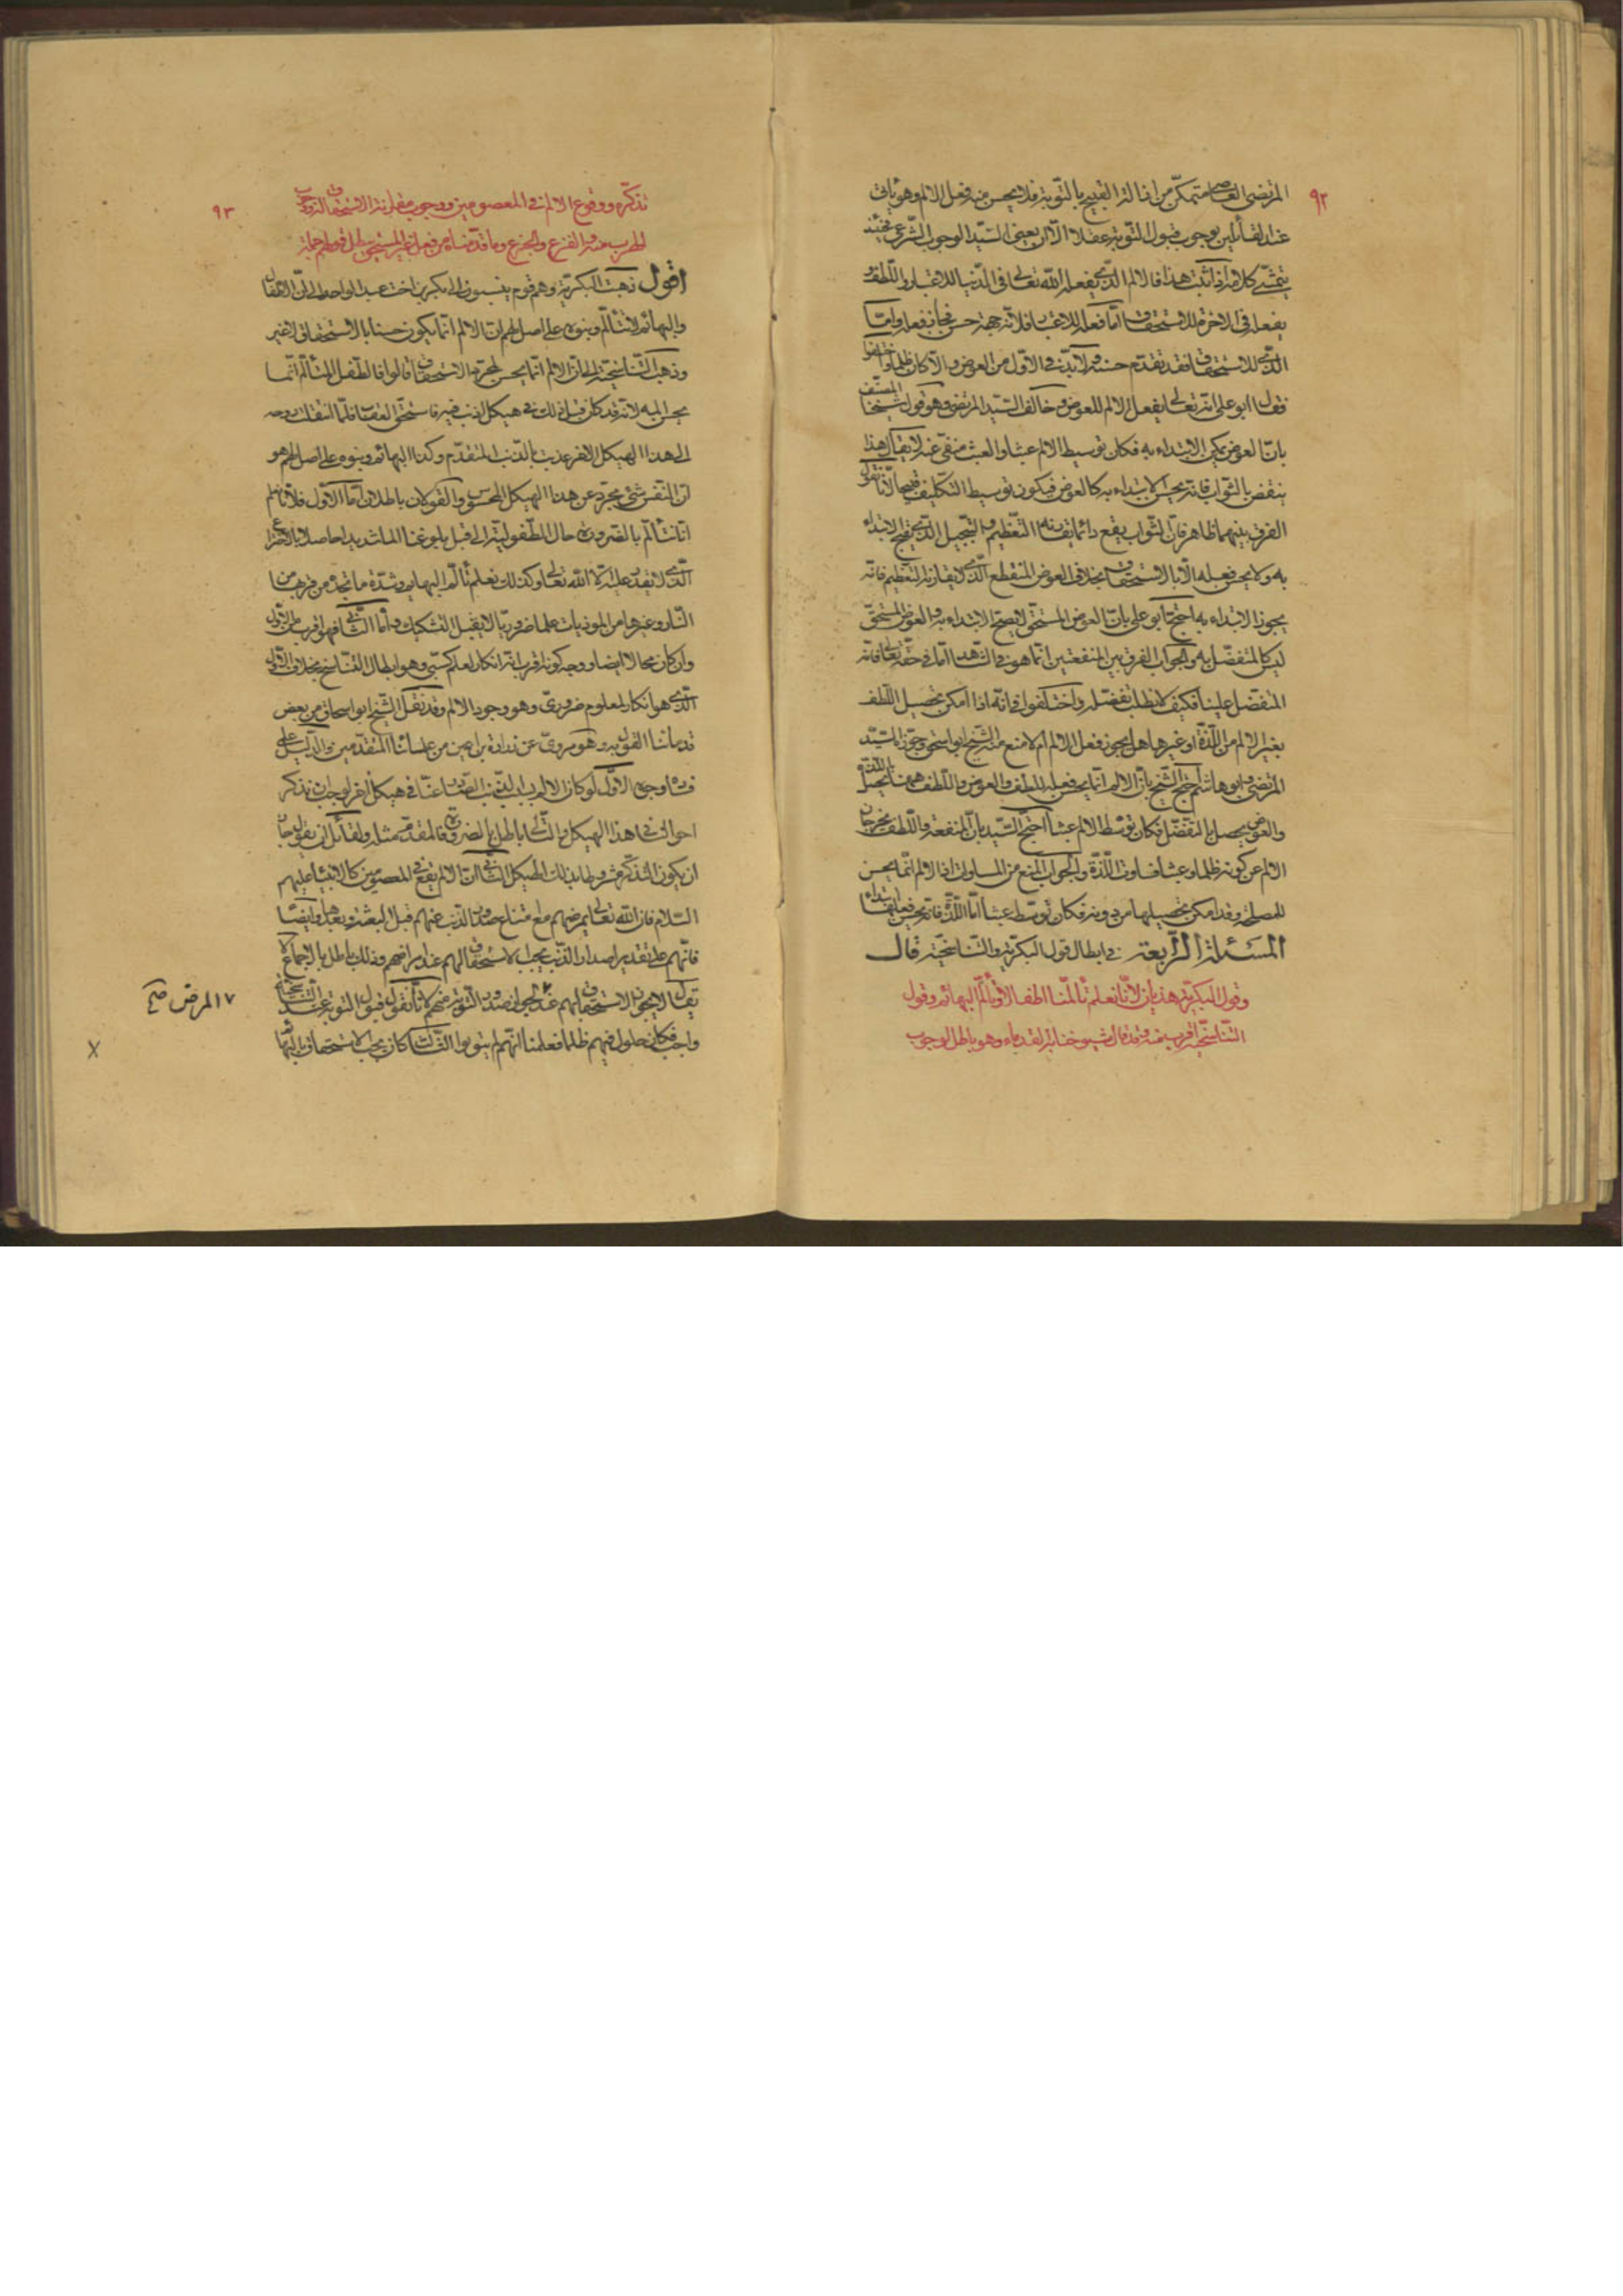 ٩٢
المرتضى العاصي متمكّن من ازالة القبيح بالتّوبة فلا يحسن منه فعل الالم وهو يأتى
عند القائلين بوجوب قبول التّوبة عقلا الّا ان يعنى السّيّد الوجوب الشّرعى فحينئذ
يتمشّى كلامه اذا ثبت هذا فالالم الّذى يفعله اللّه تعالى فى الدّنيا للاعتبار واللّطف و
يفعله فى الاخرة للاستحقاق امّا فعله للاعتبار فلانّه جهة حسن فجاز فعله وامّا
الّذى للاستحقاق فقد تقدّم حسنه ولا بدّ فى الاوّل من العوض والّا كان ظلما واختلفوا
فقال ابو على انّه تعالى يفعل الالم للعوض وخالف السّيّد المرتضى وهو قول شيخنا المصنّف
بانّ العوض يمكن الابتداء به فكان توسيط الالم عبثا والعبث منفىّ عنه لا يقال هذا
ينتقض بالثّواب فانّه يحسن الابتداء به كالعوض فيكون توسيط التّكليف قبيحا لانّا نقول
الفرق بينهما ظاهر فانّ الثّواب يقع دائما يقارنه التّعظيم والتّبجيل الّذى يقبح الابتداء
به ولا يحسن فعله الّا بالاستحقاق بخلاف العوض المنقطع الّذى لا يقارنه التّعظيم فانّه
يجوز الابتداء به احتجّ ابو على بانّ العوض المستحقّ لا يصحّ الابتداء به والعوض المستحقّ
ليس كالمتفضّل به والجواب الفرق بين المنفعتين انّما هو فى الشّاهد امّا فى حقّه تعالى فانّه
المتفضّل علينا فكيف لا نطلب تفضّله واختلفوا فى انّه اذا امكن تحصيل اللّطف
بغير الالم من اللّذّة او غيرها هل يجوز فعل الالم ام لا منع منه الشّيخ ابو اسحق وجوّزه السّيّد
المرتضى وابو هاشم احتجّ الشّيخ بانّ الالم انّما يحسن فعله للّطف والعوض واللّطف ههنا يحصل باللّذّة
والعوض يحصل بالتفضّل فكان توسّط الالم عبثا احتجّ السّيّد بانّ المنفعة واللّطف يخرجان
الالم عن كونه ظلما وعبثا فساوت اللّذّة والجواب المنع من المساواة اذ الالم انّما يحسن
للمصلحة وقد امكن تحصيلها من دونه فكان توسّطه عبثا امّا اللّذّة فانّه يحسن فعلها ابتداء
المسئلة الرّابعة فى ابطال قول البكريّة والتّناسخيّة قال
وقول البكريّة هذيان لانّا نعلم تألّمنا اطفالا وتألّم البهائم وقول
التّناسخيّة اقرب منه وقد قال شيوخنا القدماء وهو باطل لوجوب
٩٣
تذكّره ووقوع الالم فى المعصومين ووجوب مقارنة الاستحقاق الذم ووجوب
الهرب منه والفزع والجزع وما قدّمناه من فعل غير المستحق يبطل قولهم جملة
اقول ذهبت البكريّة وهم قوم ينسبون الى بكر بن اخت عبد الواحد الى انّ الاطفال
والبهائم لا تتألّم وبنوه على اصل لهم انّ الالم انّما يكون حسنا بالاستحقاق لا غير
وذهبت التّناسخيّة الى انّ الالم انّما يحسن لمجرّد الاستحقاق قالوا فالطّفل المتألّم انّما
يحسن المه لانّه قد كان قبل ذلك فى هيكل اذنب فيه فاستحقّ العقاب فلمّا انتقلت روحه
الى هذا الهيكل الاخر عذّب بالذّنب المتقدّم وكذا البهائم وبنوه على اصل لهم هو
انّ النّفس شىء مجرّد عن هذا الهيكل المحسوس والقولان باطلان امّا الاوّل فلانّا نعلم
انّا نتألّم بالضّرورة حال الطّفوليّة الى قبل بلوغنا الما شديدا حاصلا بالاختراع
الّذى لا يقدر عليه الّا اللّه تعالى وكذلك نعلم تألّم البهائم وشدّة ما تجده من قربها من
النّار وغيرها من الموذيات علما ضروريّا لا يقبل التشكيك وامّا الثّانى فهو اقرب من الاوّل
وان كان محالا ايضا ووجه كونه اقرب انّه انكار لعلم كسبى وهو ابطال التّناسخ بخلاف الاوّل
الّذى هو انكار لمعلوم ضرورىّ وهو وجود الالم وقد نقل الشّيخ ابو اسحاق من بعض
قدمائنا القول به وهو مروىّ عن زرارة بن اعين من علمائنا المتقدّمين والدّليل على
فساده وجوه الاوّل لو كان الالم بسبب الذّنب الصّادر عنّا فى هيكل اخر لوجب ان نتذكر
احوالنا فى هذا الهيكل والتّالى باطل بالضرورة فالمقدّم مثله ولقائل ان يقول جاز
ان يكون التّذكّر مشروطا بذلك الهيكل الثّانى انّ الالم يقع فى المعصومين كالانبياء عليهم
السّلام فانّ اللّه تعالى يمرضهم مع امتناع صدور الذّنب عنهم قبل البعثة وبعدها وايضا
فانّهم على تقدير اصدار الذّنب يجب الاستحقاق لهم عند امراضهم وذلك باطل بالاجماع لا
يقال لا يجوز الاستحقاق لهم عند لجواز صدور التّوبة منهم لانّا نقول قبول التّوبة عند التناسخية
واجب فكان حلول فيهم ظلما فعلمنا انّهم لم يتوبوا الثّالث لو كان يجب الاستحقاق بالبهائم
١٧ المرض صح